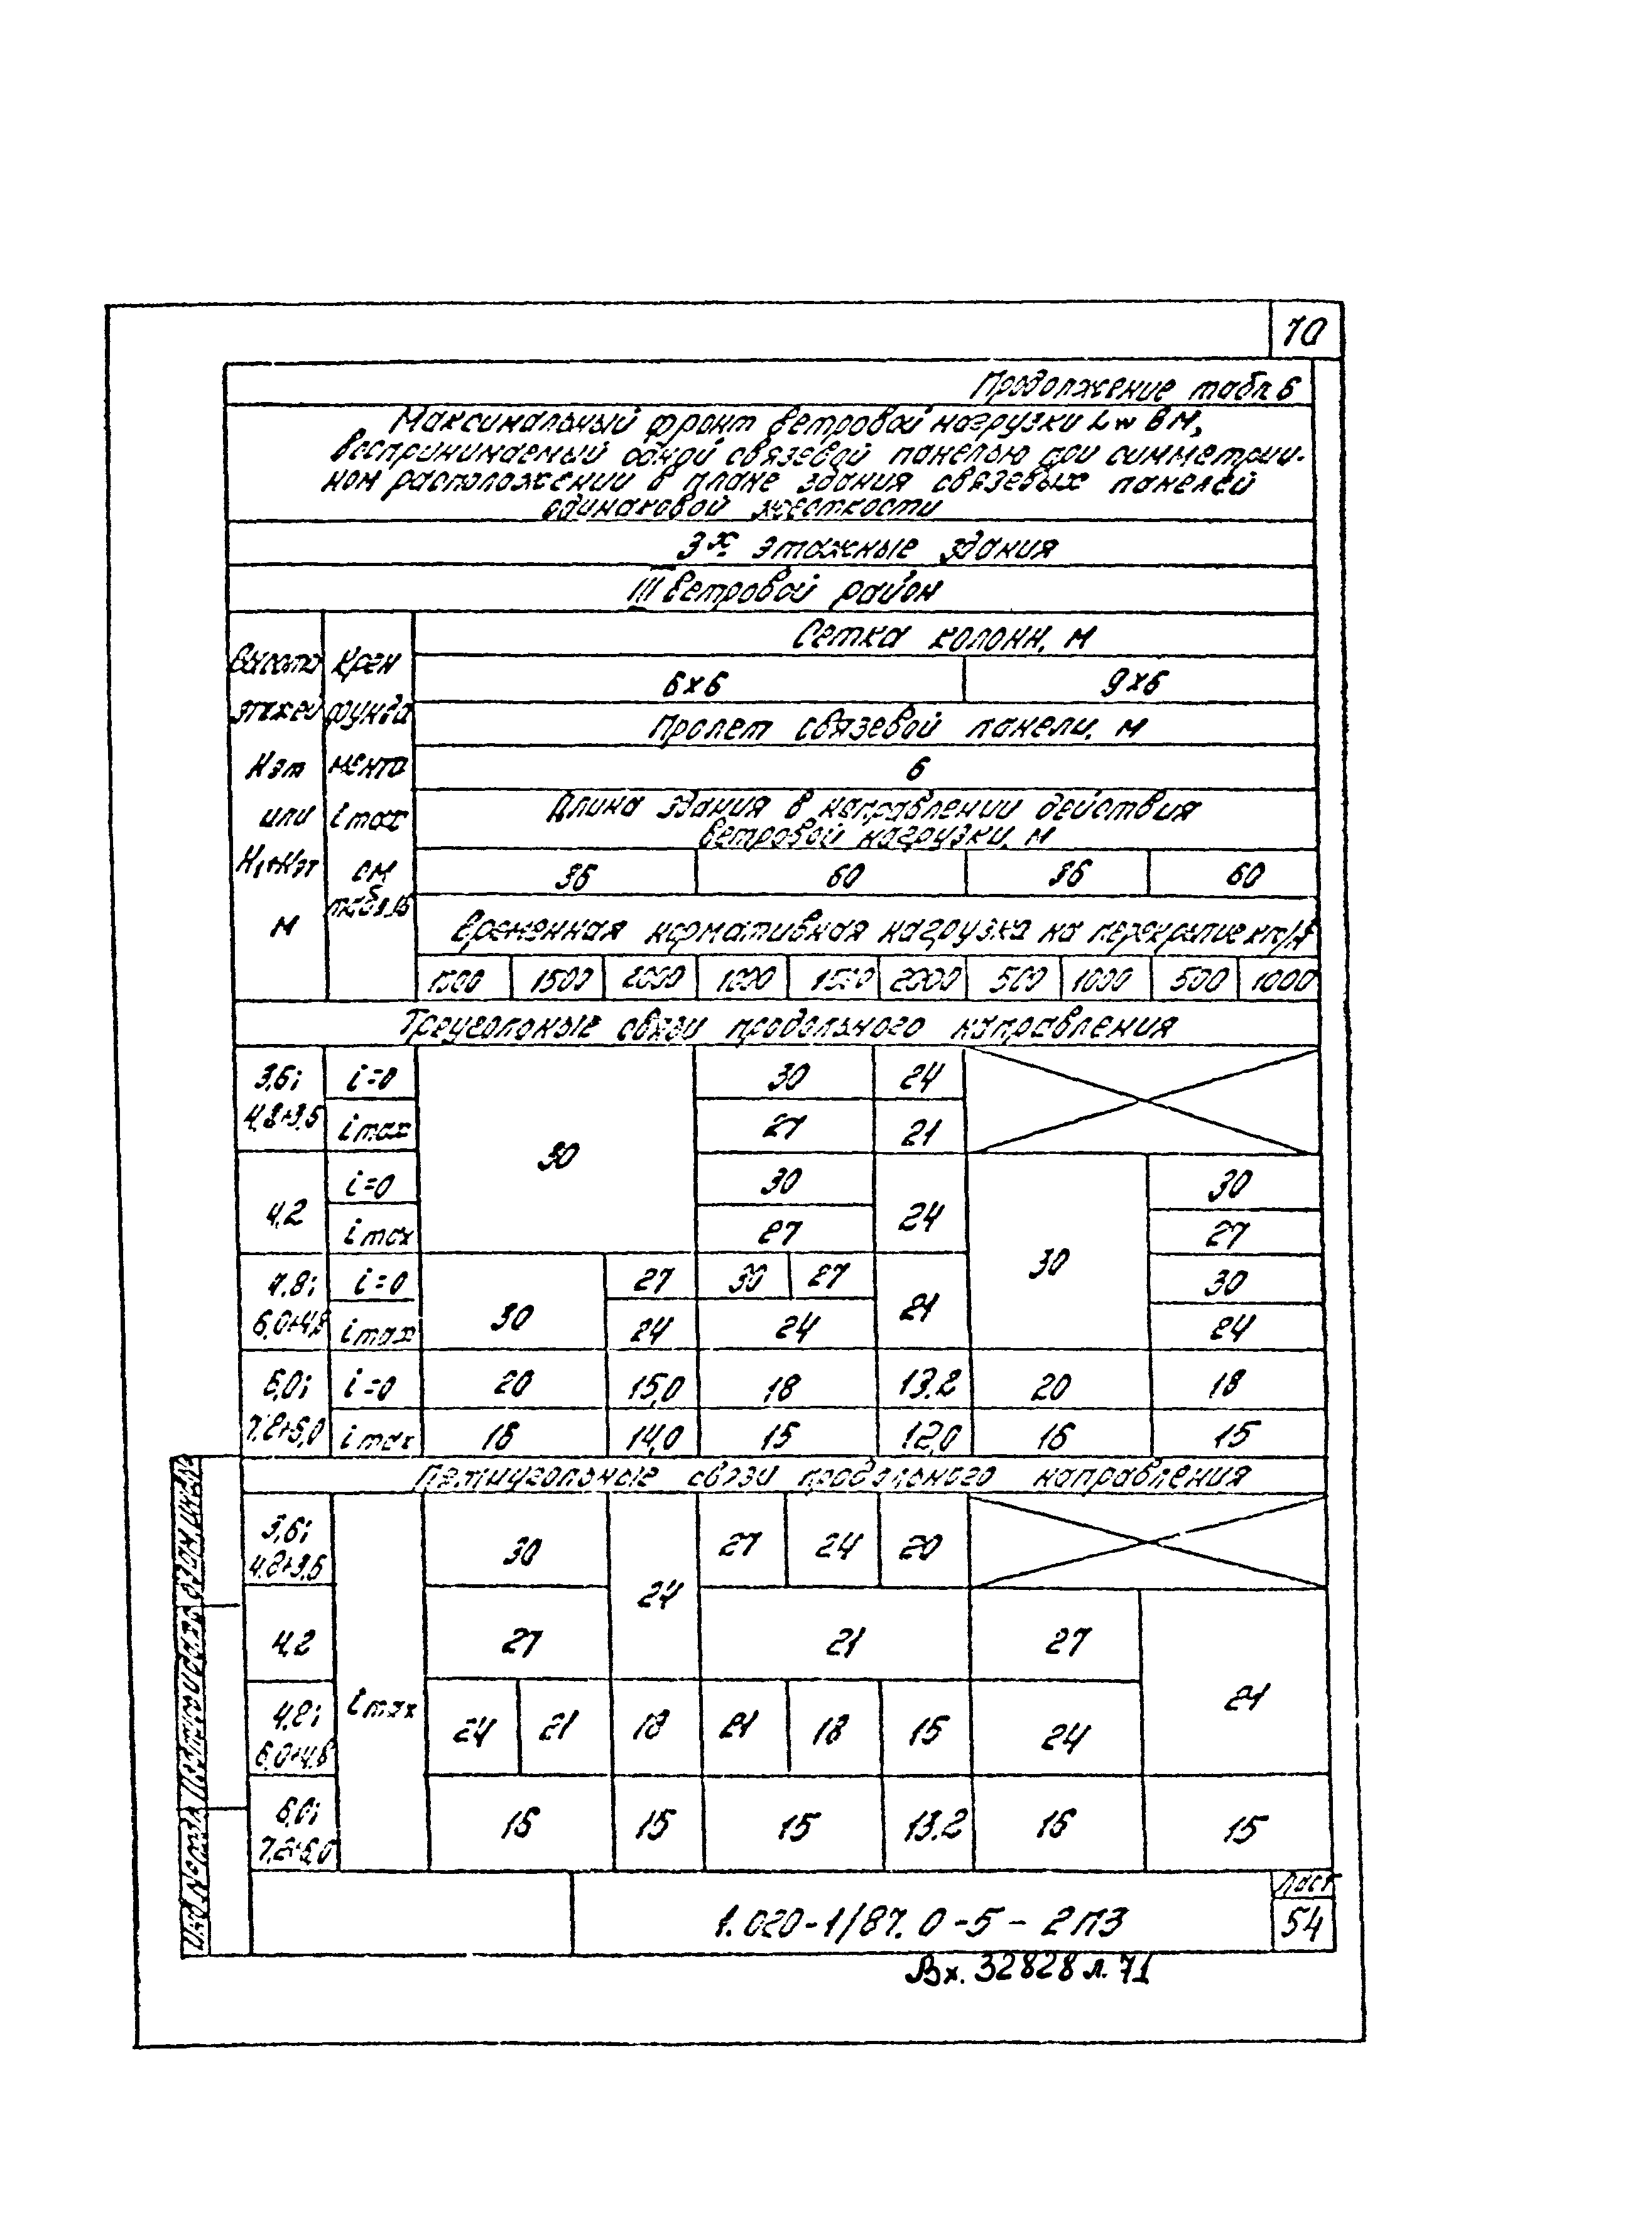 70
Продолжение табл 6
Максимальный фронт ветровой нагрузки Lw в м,
воспринимаемый одной связевой панелью при симметрич-
ном расположении в плане здания связевых панелей
одинаковой жесткости
3х этажные здания
III ветровой район
Высота этажей Нэт или Н1+Нэт м
Крен фунда мента i max см табл.16
Сетка колонн, м
6х6 9х6
Пролет связевой панели, м
6
Длина здания в направлении действия
ветровой нагрузки, м
36 60 36 60
Временная нормативная нагрузка на перекрытие
1000 1500 2000 1000 1500 2000 500 1000 500 1000
Треугольные связи продольного направления
3,6; i=0 30 24
4,8+3,6 i max 27 21
30
4,2 i=0 30 24 30
i max 27 27
30
4,8; i=0 27 30 27 21 30
6,0+4,8 i max 30 24 24 24
6,0; i=0 20 15,0 18 13.2 20 18
7,2+6,0 i max 16 14,0 15 12,0 16 15
Пятиугольные связи продольного направления
3,6; 30 27 24 20
4,8+3,6
24
4,2 27 21 27
i max
21
4,8; 24 21 18 21 18 15 24
6,0+4,8
6,0; 16 15 15 13.2 16 15
7,2+6,0
Лист
1.020-1/87. 0-5-2ПЗ 54
Вх. 32828 л. 71